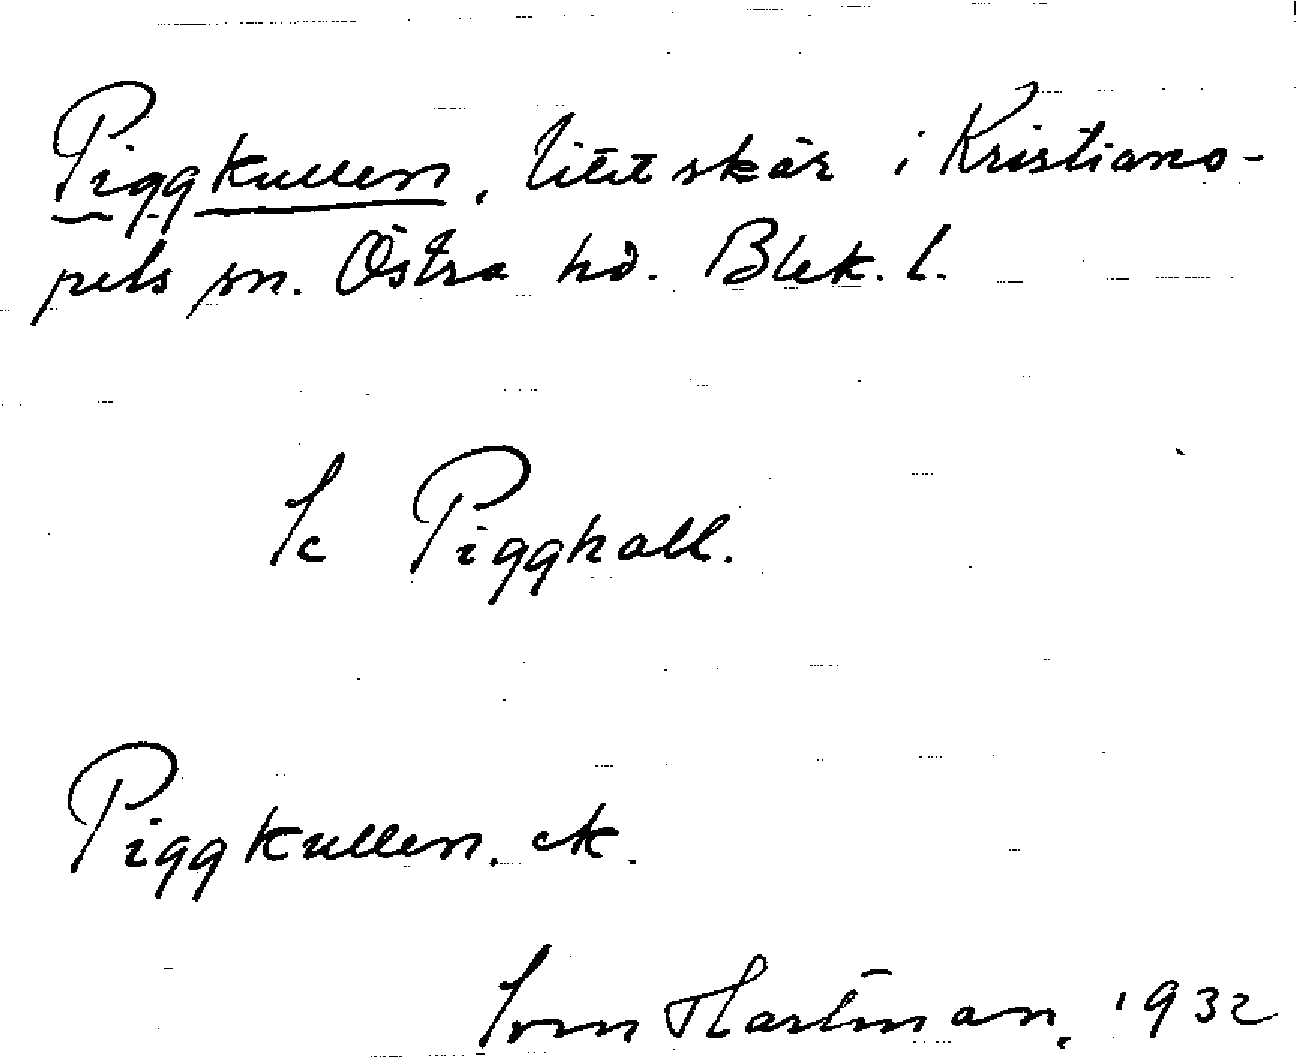 Piggkullen, litet skär i Kristiano-
pels sn. Östra hd. Blek. l.
Sc Piggkall.
Piggkullen. ek.
Sven Hartman, 1932